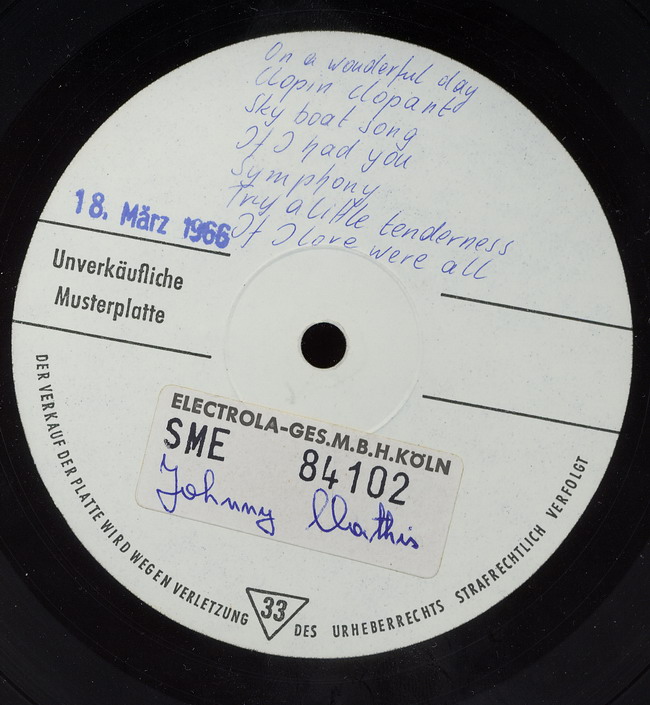 On a wonderful day
Clopin Clopant
Sky boat song
If I had you
Symphony
Try a little tenderness
If I Love were all
18. März 1966
Unverkäufliche
Musterplatte
ELECTROLA-GES.M.B.H.KÖLN
SME 84102
Johnny Mathis
DER VERKAUF DER PLATTE WIRD WEGEN VERLETZUNG DES URHEBERRECHTS STRAFRECHTLICH VERFOLGT
33